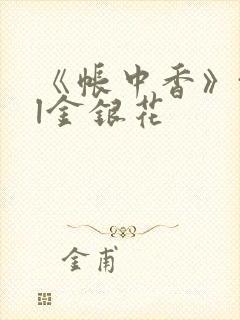 《帐中香》
金银花
金甫